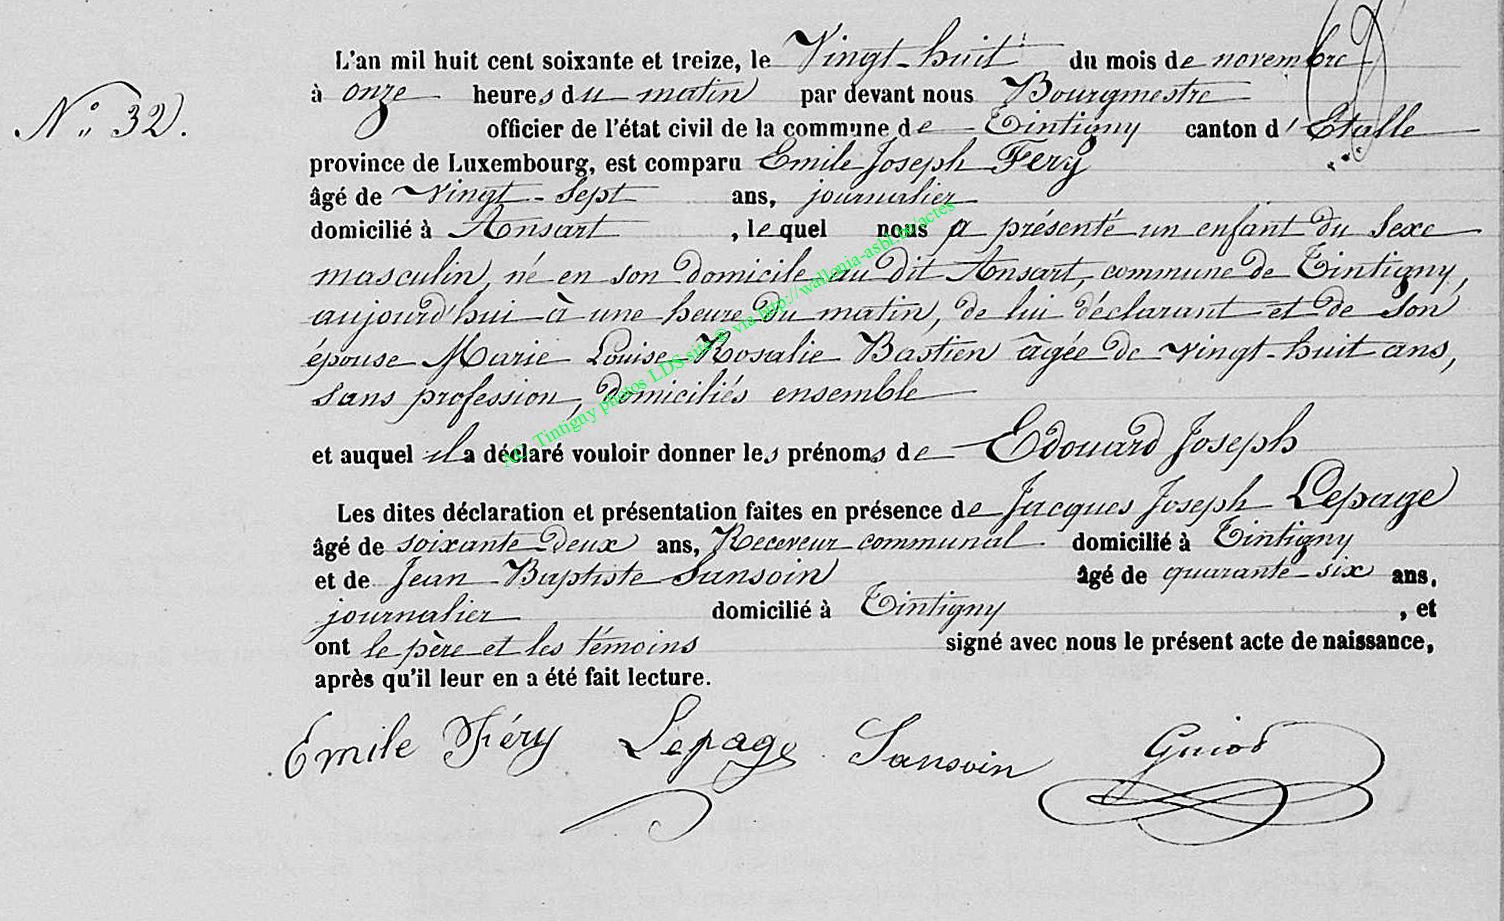 L'an mil huit cent soixante et treize, le Vingt-huit du mois de novembre
à onze heures du matin par devant nous Bourgmestre
N° 32.
officier de l'état civil de la commune de Tintigny canton d'Etalle
province de Luxembourg, est comparu Emile Joseph Fery
âgé de vingt-sept ans, journalier
domicilié à Ansart, lequel nous a présenté un enfant du sexe
masculin, né en son domicile au dit Ansart, commune de Tintigny,
aujourd'hui à une heure du matin, de lui déclarant et de son
épouse Marie Louise Rosalie Bastien âgée de vingt-huit ans,
sans profession, domiciliés ensemble
et auquel il a déclaré vouloir donner les prénoms de Edouard Joseph
Les dites déclaration et présentation faites en présence de Jacques Joseph Lepage
âgé de soixante deux ans, Receveur communal domicilié à Tintigny
et de Jean Baptiste Sansoin âgé de quarante-six ans,
journalier domicilié à Tintigny, et
ont le père et les témoins signé avec nous le présent acte de naissance,
après qu'il leur en a été fait lecture.
Emile Féry Lepage Sansoin
AC Tintigny photos LDS site © via http://wallonia-asbl.be/actes